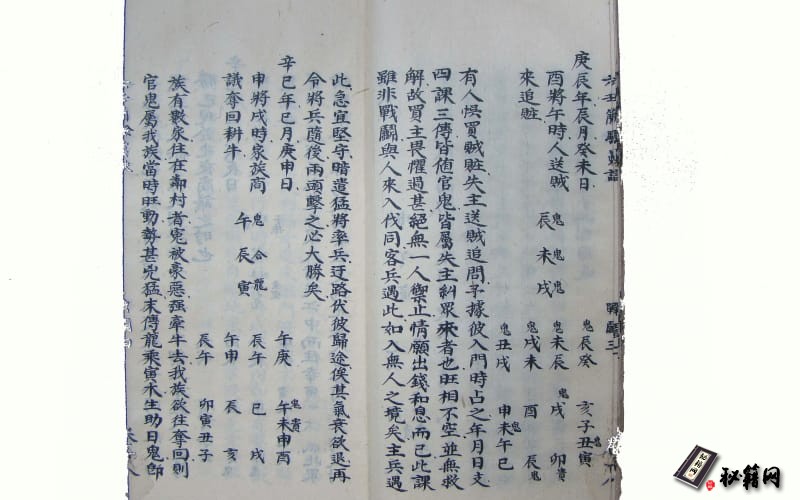 庚辰年辰月癸未日
酉將午時人送贼
來追賍
鬼 鬼 鬼
辰 未 戌
鬼辰癸 鬼未辰 鬼戌未 鬼丑戌
亥子丑寅
鬼戌 卯貴
酉 辰鬼
申未午巳
有人悞買贼賍失主送贼追問予據彼入門時占之年月日支
四課三傳皆值官鬼皆屬失主糾眾來者也旺相不空並無救
解故買主畏懼過甚絕無一人禦止情願出錢和息而已此課
雖非戰鬪與人來入伐同客兵遇此如入無人之境矣主兵遇
此急宜堅守暗遣猛將率兵迂路伏彼歸途俟其氣衰欲退再
令將兵隨後兩頭擊之必大勝矣
辛巳年巳月庚申日
申將戌時家族商
議奪回耕牛
鬼 合 龍
午 辰 寅
午庚 辰午 午申 辰午
鬼 貴
午未申酉
巳 戌
辰 亥
卯寅丑子
族有數家住在鄰村者冤被豪惡强牽牛去我族欲往奪回則
官鬼屬我族當時旺動勢甚兇猛末傳龍乘寅木生助日鬼即
秘籍网